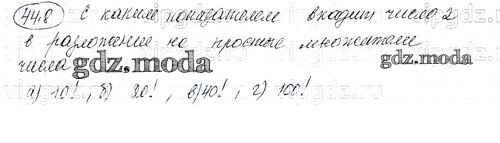 44.8 С каким показателем входит число 2
в разложение на простые множители
числа
gdz.moda
gdz.moda
а) 10!, б) 20!, в) 40!, г) 100!